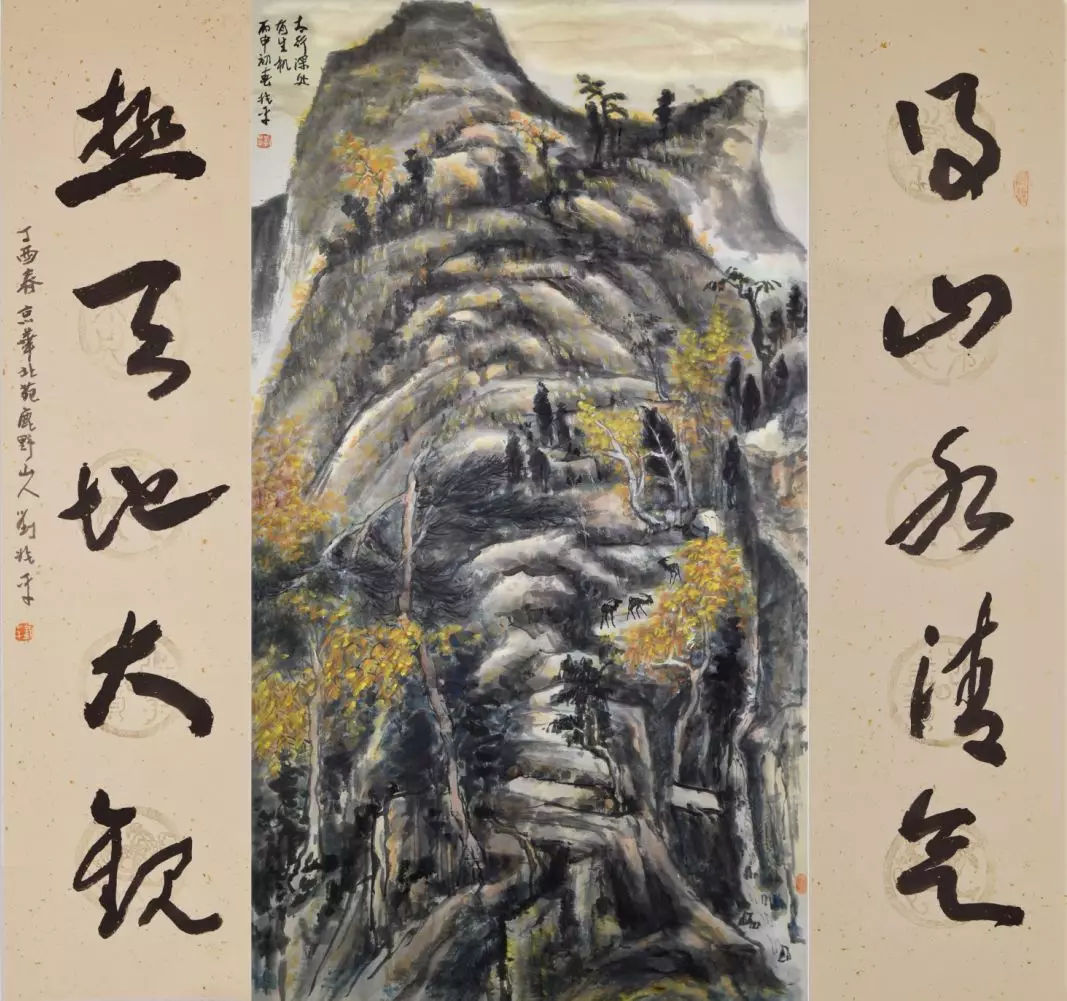 得山水清气
太行深处
有生机
丙申初春
極天地大观
丁酉春京華北苑鹿野山人劉